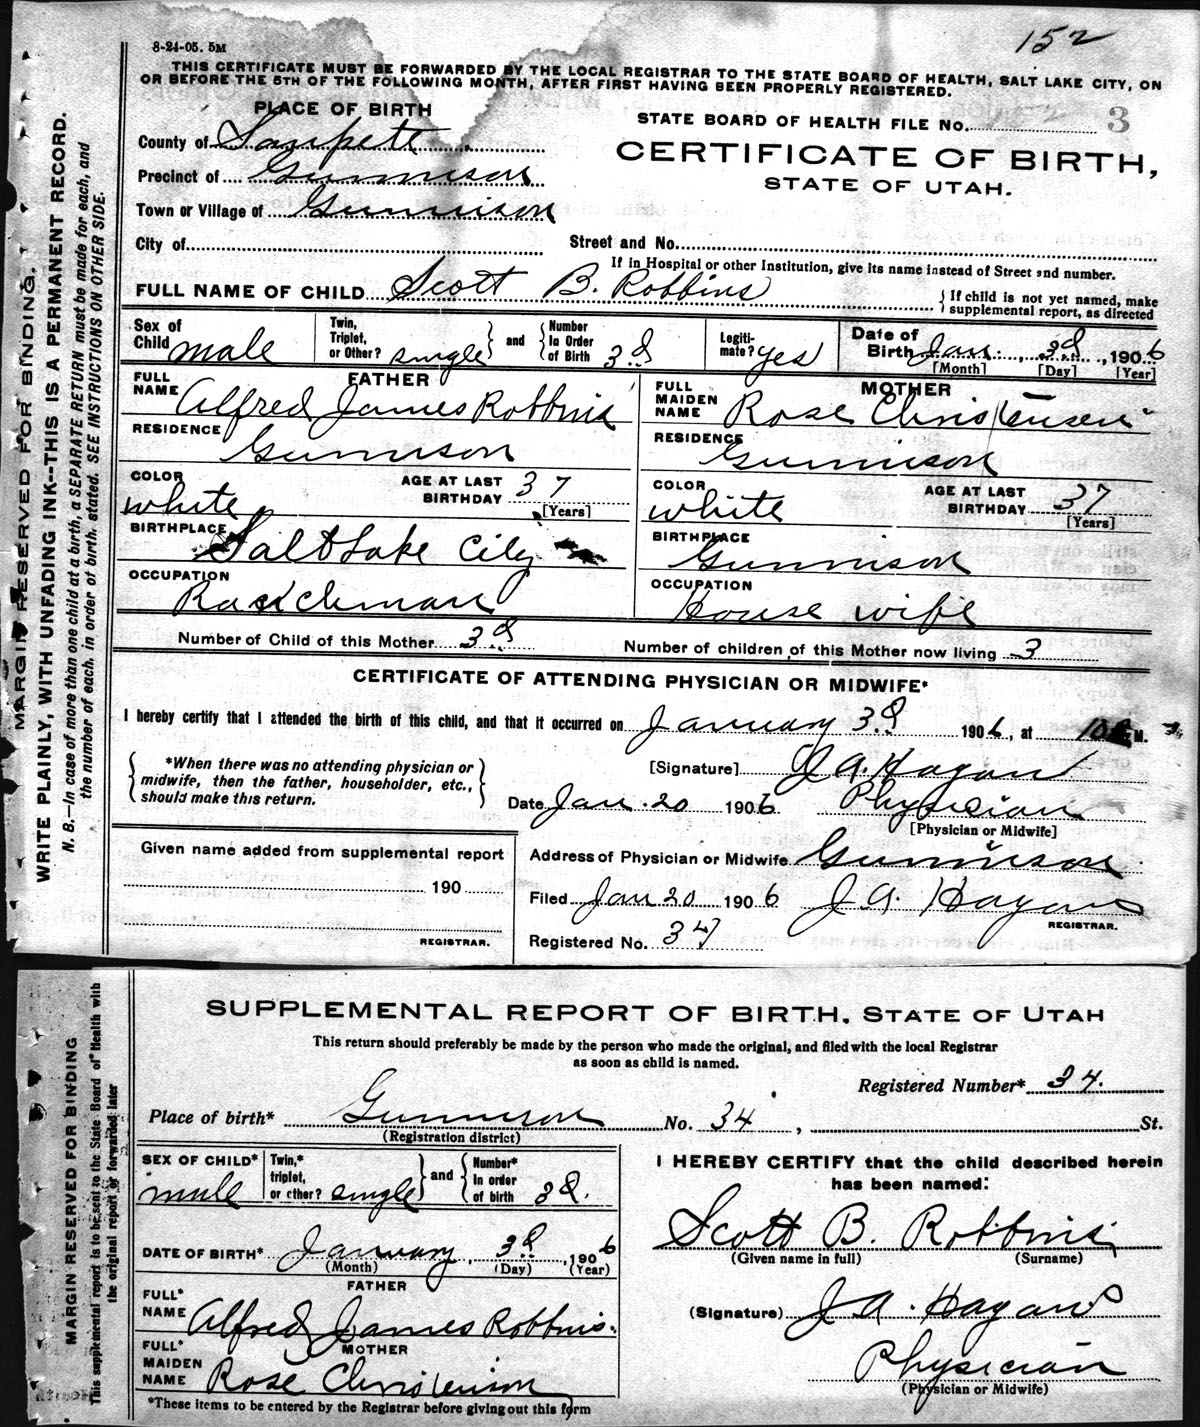 152
8-24-05. 5M
THIS CERTIFICATE MUST BE FORWARDED BY THE LOCAL REGISTRAR TO THE STATE BOARD OF HEALTH, SALT LAKE CITY, ON
OR BEFORE THE 5TH OF THE FOLLOWING MONTH, AFTER FIRST HAVING BEEN PROPERLY REGISTERED.
PLACE OF BIRTH
STATE BOARD OF HEALTH FILE NO. 3
County of Sanpete
CERTIFICATE OF BIRTH,
Precinct of Gunnison
STATE OF UTAH.
Town or Village of Gunnison
City of Street and No.
If in Hospital or other Institution, give its name instead of Street and number.
FULL NAME OF CHILD Scott B. Robbins
{If child is not yet named, make
supplemental report, as directed
Sex of Child male Twin, Triplet, or Other? single } and { Number In Order of Birth 3d Legiti-mate? yes Date of Birth Jan. 3d, 1906
[Month] [Day] [Year]
FATHER MOTHER
FULL NAME Alfred James Robbins FULL MAIDEN NAME Rose Christensen
RESIDENCE Gunnison RESIDENCE Gunnison
COLOR white AGE AT LAST BIRTHDAY 37 [Years] COLOR white AGE AT LAST BIRTHDAY 37 [Years]
BIRTHPLACE Salt Lake City BIRTHPLACE Gunnison
OCCUPATION Ranchman OCCUPATION House wife
Number of Child of this Mother 3d Number of children of this Mother now living 3
CERTIFICATE OF ATTENDING PHYSICIAN OR MIDWIFE*
I hereby certify that I attended the birth of this child, and that it occurred on January 3d 1906, at 10 M.
{ *When there was no attending physician or
midwife, then the father, householder, etc.,
should make this return. }
[Signature] J A. Hagan
Date Jan. 20 1906 Physician
[Physician or Midwife]
Given name added from supplemental report
190
REGISTRAR.
Address of Physician or Midwife Gunnison
Filed Jan 20 1906 J. A. Hagan
REGISTRAR.
Registered No. 34
MARGIN RESERVED FOR BINDING.
WRITE PLAINLY, WITH UNFADING INK--THIS IS A PERMANENT RECORD.
N. B.—In case of more than one child at a birth, a SEPARATE RETURN must be made for each, and
the number of each, in order of birth, stated. SEE INSTRUCTIONS ON OTHER SIDE.
SUPPLEMENTAL REPORT OF BIRTH, STATE OF UTAH
This return should preferably be made by the person who made the original, and filed with the local Registrar
as soon as child is named.
Registered Number* 34.
Place of birth* Gunnison No. 34, St.
(Registration district)
SEX OF CHILD* male Twin,* triplet, or other? single } and { Number* In order of birth 3d.
I HEREBY CERTIFY that the child described herein
has been named:
Scott B. Robbins
(Given name in full) (Surname)
DATE OF BIRTH* January, 3d, 1906
(Month) (Day) (Year)
FATHER
FULL* NAME Alfred James Robbins.
(Signature) J A. Hagan
MOTHER
FULL* MAIDEN NAME Rose Christenson
Physician
(Physician or Midwife)
*These items to be entered by the Registrar before giving out this form
MARGIN RESERVED FOR BINDING
This supplemental report is to be sent to the State Board of Health with
the original report or forwarded later